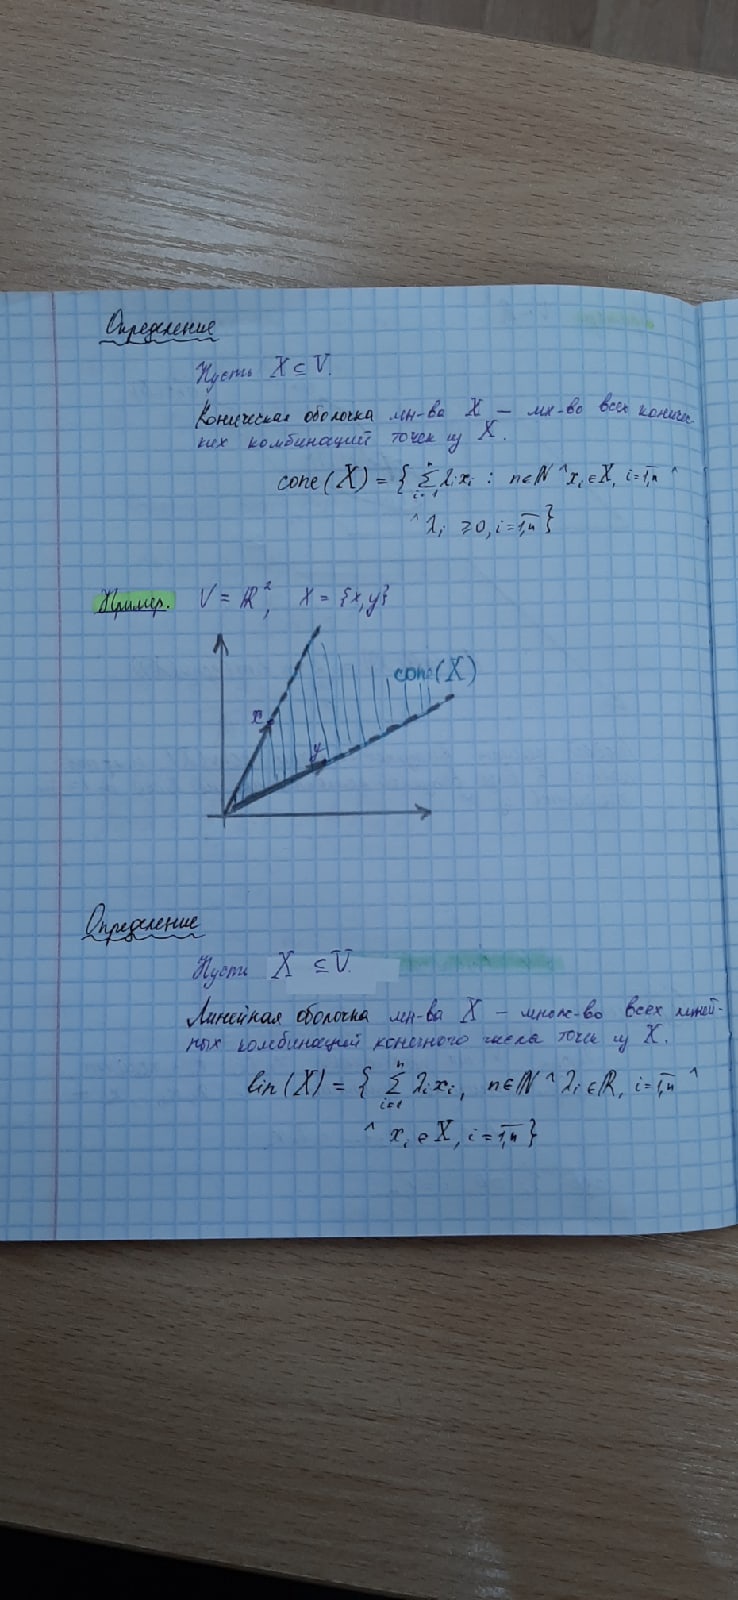 Определение
Пусть X ⊆ V.
Коническая оболочка мн-ва X – мн-во всех коничес-
ких комбинаций точек из X.
cone(X) = { ∑ᵢ₌₁ⁿ λᵢxᵢ : n∈ℕ ^ xᵢ∈X, i=1,n̅ ^
^ λᵢ ≥0, i=1,n̅ }
Пример. V = ℝ², X = {x,y}
cone(X)
x
y
Определение
Пусть X ⊆ V.
Линейная оболочка мн-ва X – множ-во всех линей-
ных комбинаций конечного числа точек из X.
lin(X) = { ∑ᵢ₌₁ⁿ λᵢxᵢ, n∈ℕ ^ λᵢ∈ℝ, i=1,n̅ ^
^ xᵢ∈X, i=1,n̅ }